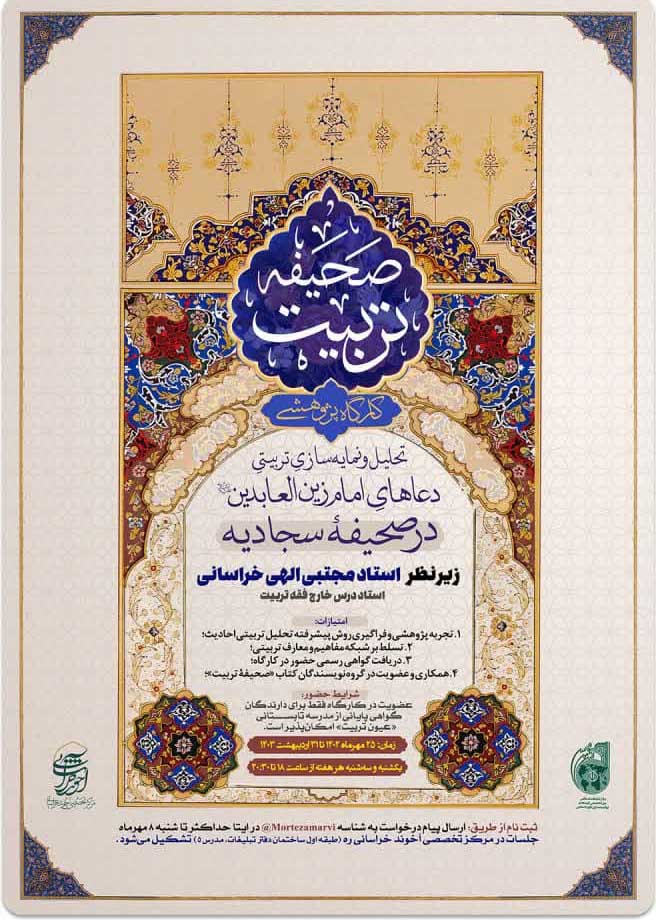 صحیفه
تربیت
کارگاه پژوهشی
تحلیل و نمایه‌سازی تربیتی
دعاهای امام زین العابدین
در صحیفهٔ سجادیه
زیر نظر استاد مجتبی الهی خراسانی
استاد درس خارج فقه تربیت
امتیازات:
۱. تجربه پژوهشی و فراگیری روش پیشرفته تحلیل تربیتی احادیث؛
۲. تسلط بر شبکه مفاهیم و معارف تربیتی؛
۳. دریافت گواهی رسمی حضور در کارگاه؛
۴. همکاری و عضویت در گروه نویسندگان کتاب «صحیفهٔ تربیت»؛
شرایط حضور:
عضویت در کارگاه فقط برای دارندگان
گواهی پایانی از مدرسه تابستانی
«عیون تربیت» امکان‌پذیر است.
زمان: ۲۵ مهرماه ۱۴۰۲ تا ۳۱ اردیبهشت ۱۴۰۳
یکشنبه و سه‌شنبه هر هفته از ساعت ۱۸ تا ۲۰:۳۰
ثبت نام از طریق: ارسال پیام درخواست به شناسه Mortezamarvi@ در ایتا حداکثر تا شنبه ۸ مهرماه
جلسات در مرکز تخصصی آخوند خراسانی ره (طبقه اول ساختمان دفتر تبلیغات، مدرس ۵) تشکیل می‌شود.